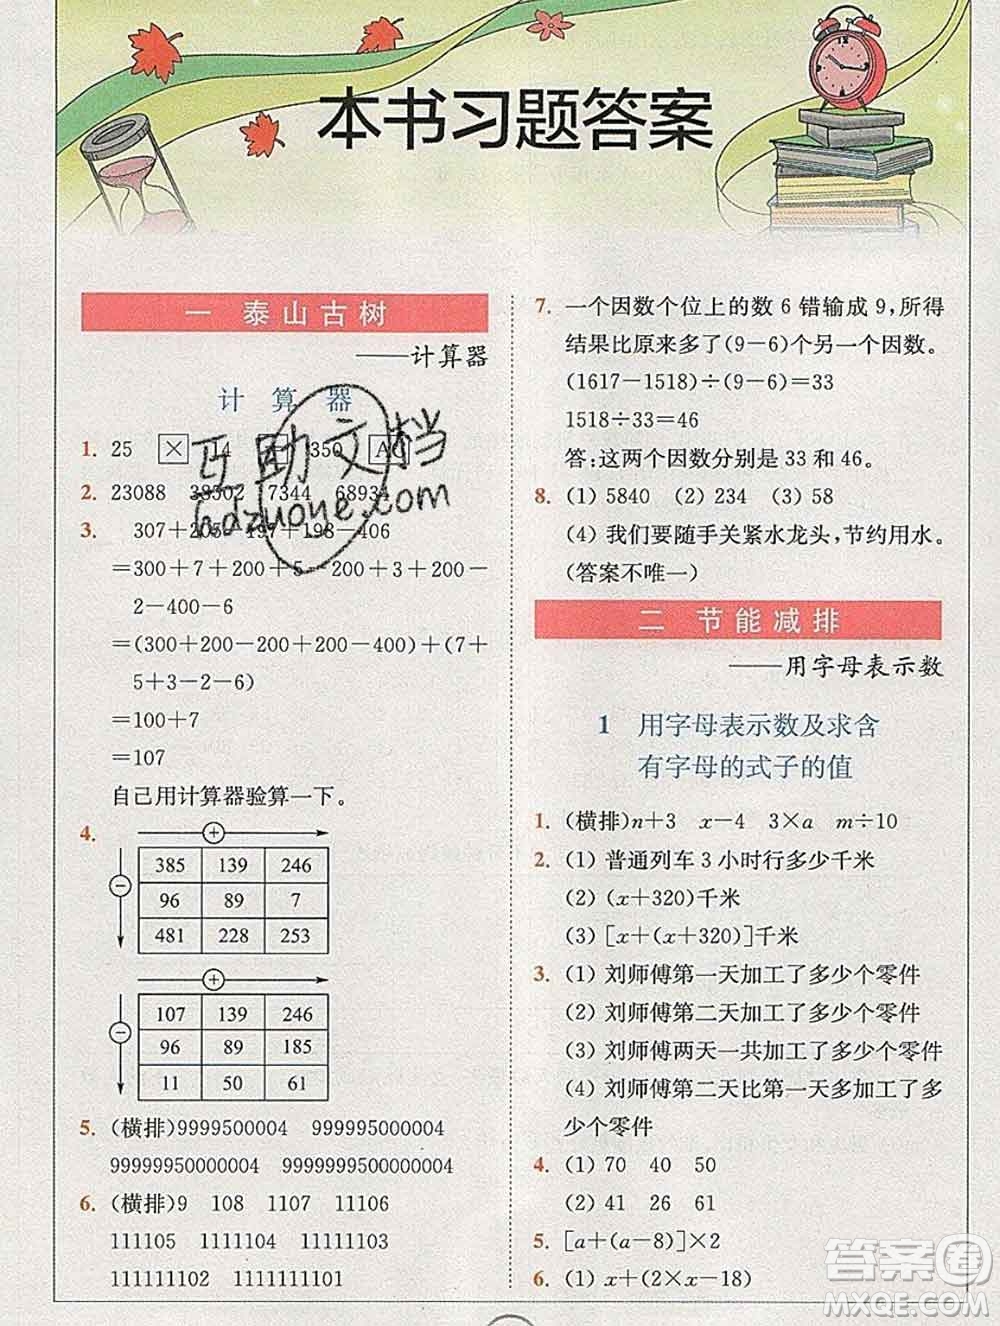 本书习题答案
一 泰山古树
——计算器
计 算 器
1. 25 × 14 350 AC
2. 23088 38302 7344 68934
3. 307+205-197+198-406
=300+7+200+5-200+3+200-
2-400-6
=(300+200-200+200-400)+(7+
5+3-2-6)
=100+7
=107
自己用计算器验算一下。
4.
+
−
385 139 246
96 89 7
481 228 253
+
−
107 139 246
96 89 185
11 50 61
5. (横排)9999500004 999995000004
99999950000004 9999999500000004
6. (横排)9 108 1107 11106
111105 1111104 11111103
111111102 1111111101
7. 一个因数个位上的数 6 错输成 9,所得
结果比原来多了(9-6)个另一个因数。
(1617-1518)÷(9-6)=33
1518÷33=46
答:这两个因数分别是 33 和 46。
8. (1) 5840 (2) 234 (3) 58
(4) 我们要随手关紧水龙头,节约用水。
(答案不唯一)
二 节能减排
——用字母表示数
1 用字母表示数及求含
有字母的式子的值
1. (横排)n+3 x-4 3×a m÷10
2. (1) 普通列车 3 小时行多少千米
(2) (x+320)千米
(3) [x+(x+320)]千米
3. (1) 刘师傅第一天加工了多少个零件
(2) 刘师傅第二天加工了多少个零件
(3) 刘师傅两天一共加工了多少个零件
(4) 刘师傅第二天比第一天多加工了多
少个零件
4. (1) 70 40 50
(2) 41 26 61
5. [a+(a-8)]×2
6. (1) x+(2×x-18)
互助文档
hdzuoye.com
答案圈
MXQE.COM